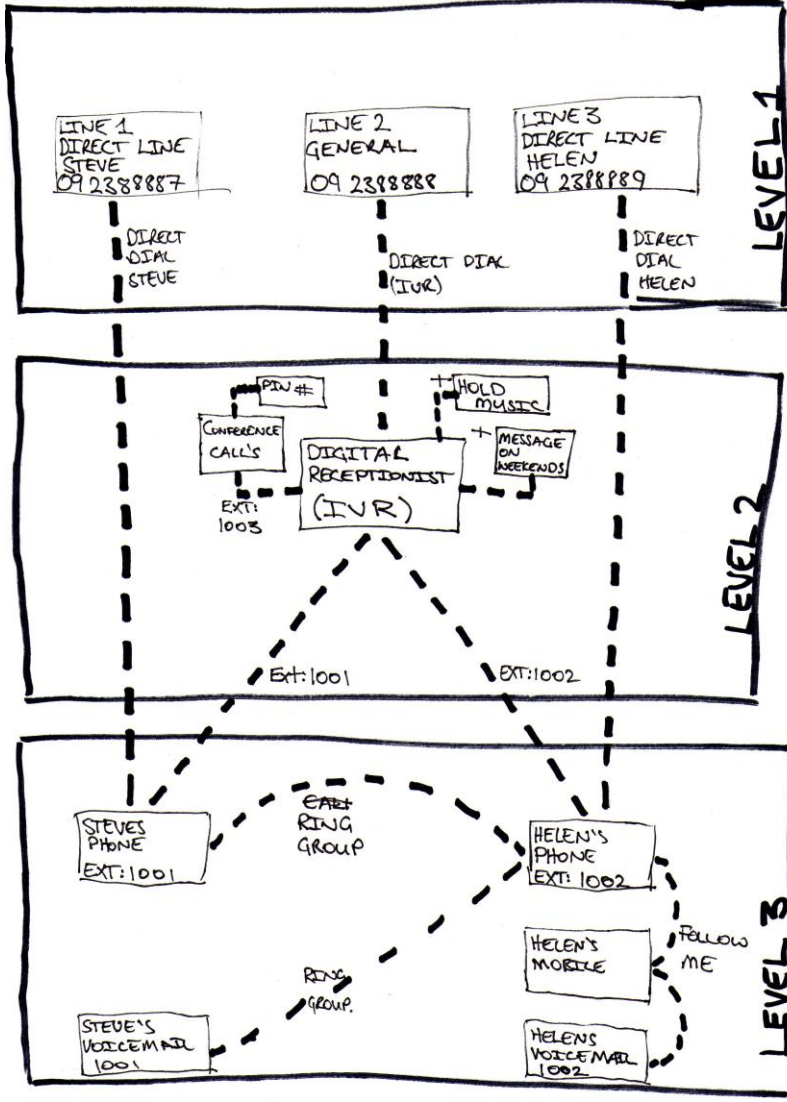 LINE 1
DIRECT LINE
STEVE
09 2388887
LINE 2
GENERAL
09 2388888
LINE 3
DIRECT LINE
HELEN
09 2388889
LEVEL 1
DIRECT
DIAL
STEVE
DIRECT DIAL
(IVR)
DIRECT
DIAL
HELEN
PIN #
+ HOLD
MUSIC
CONFERENCE
CALL'S
+ MESSAGE
ON
WEEKENDS
DIGITAL
RECEPTIONIST
(IVR)
EXT:
1003
LEVEL 2
Ext:1001
EXT:1002
STEVES
PHONE
EXT:1001
RING
GROUP
HELEN'S
PHONE
EXT: 1002
HELEN'S
MOBILE
FOLLOW
ME
LEVEL 3
RING
GROUP.
STEVE'S
VOICEMAIL
1001
HELENS
VOICEMAIL
1002